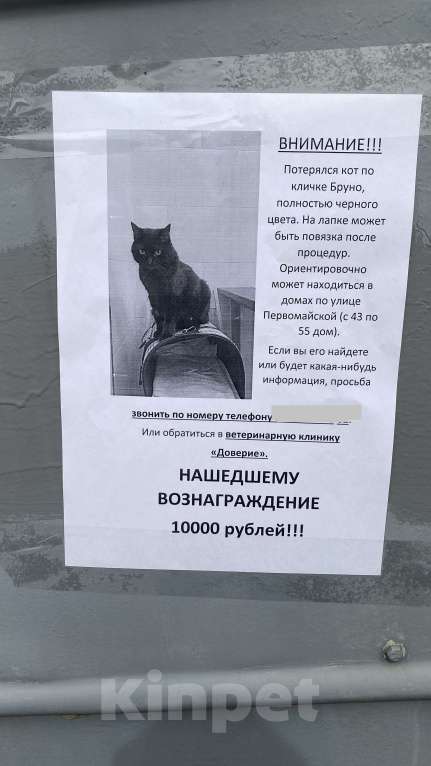 ВНИМАНИЕ!!!
Потерялся кот по
кличке Бруно,
полностью черного
цвета. На лапке может
быть повязка после
процедур.
Ориентировочно
может находиться в
домах по улице
Первомайской (с 43 по
55 дом).
Если вы его найдете
или будет какая-нибудь
информация, просьба
звонить по номеру телефону
Или обратиться в ветеринарную клинику
«Доверие».
НАШЕДШЕМУ
ВОЗНАГРАЖДЕНИЕ
10000 рублей!!!
Kinpet